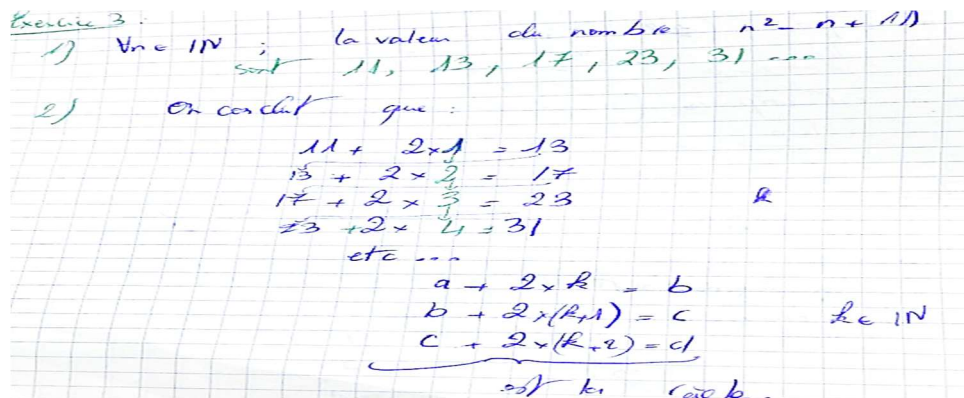 Exercice 3 :
1) ∀n ∈ IN ; la valeur du nombre n² - n + 11
sont 11, 13, 17, 23, 31 ....
2) On conclut que :
11 + 2×1 = 13
13 + 2 × 2 = 17
17 + 2 × 3 = 23
23 + 2 × 4 = 31
etc ....
a + 2 × k = b
b + 2 × (k+1) = c k ∈ IN
c + 2 × (k+2) = d
est la